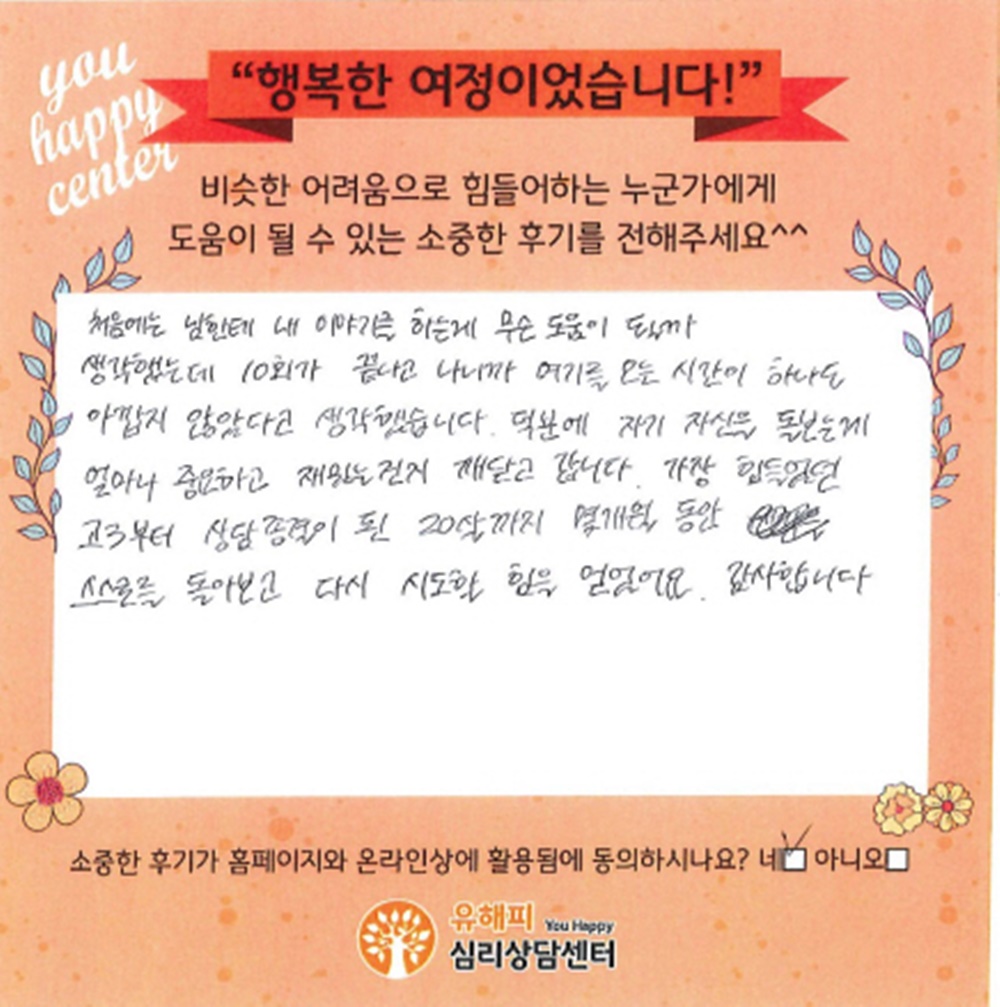 you
happy
center
“행복한 여정이었습니다!”
비슷한 어려움으로 힘들어하는 누군가에게
도움이 될 수 있는 소중한 후기를 전해주세요^^
처음에는 남한테 내 이야기를 하는게 무슨 도움이 될까
생각했는데 10회가 끝나고 나니까 여기를 오는 시간이 하나도
아깝지 않았다고 생각했습니다. 덕분에 자기 자신을 돌보는게
얼마나 중요하고 재밌는건지 깨닫고 갑니다. 가장 힘들었던
고3부터 상담종결이 된 20살까지 몇개월 동안
스스로를 돌아보고 다시 시도할 힘을 얻었어요. 감사합니다
소중한 후기가 홈페이지와 온라인상에 활용됨에 동의하시나요? 네 아니오
유해피 You Happy
심리상담센터